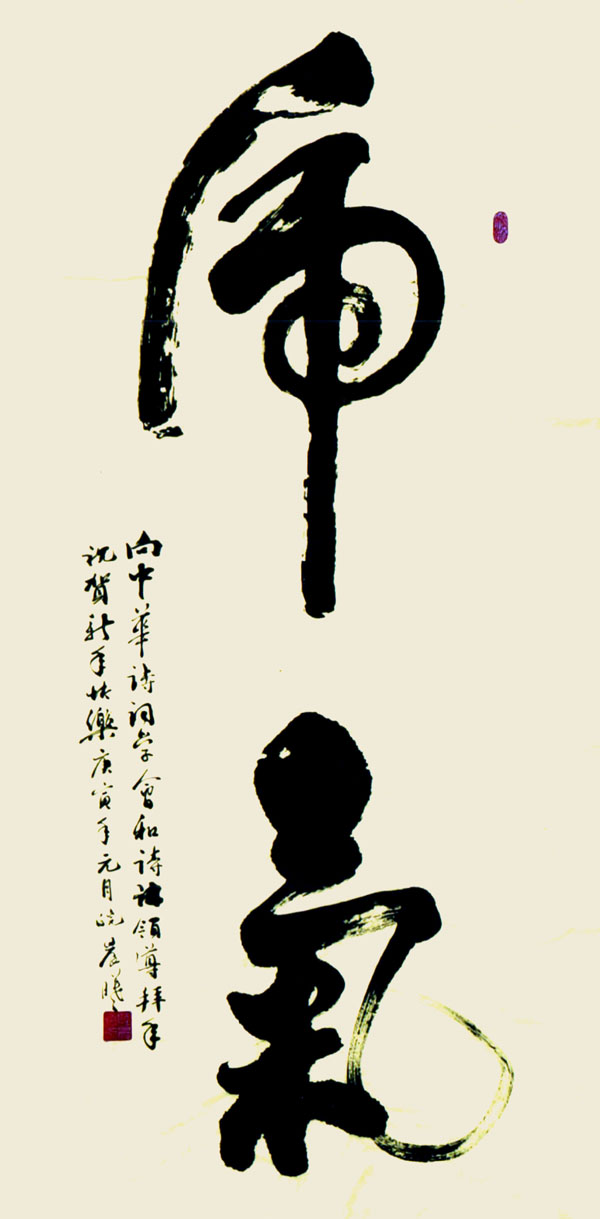 虎氣
向中華詩詞学會和詩領導拜年
祝賀新年快樂庚寅年元月皖